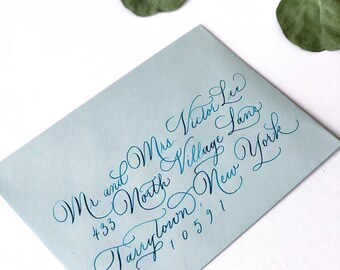 Mr. and Mrs. Victor Lee
433 North Village Lane
Tarrytown, New York
10591